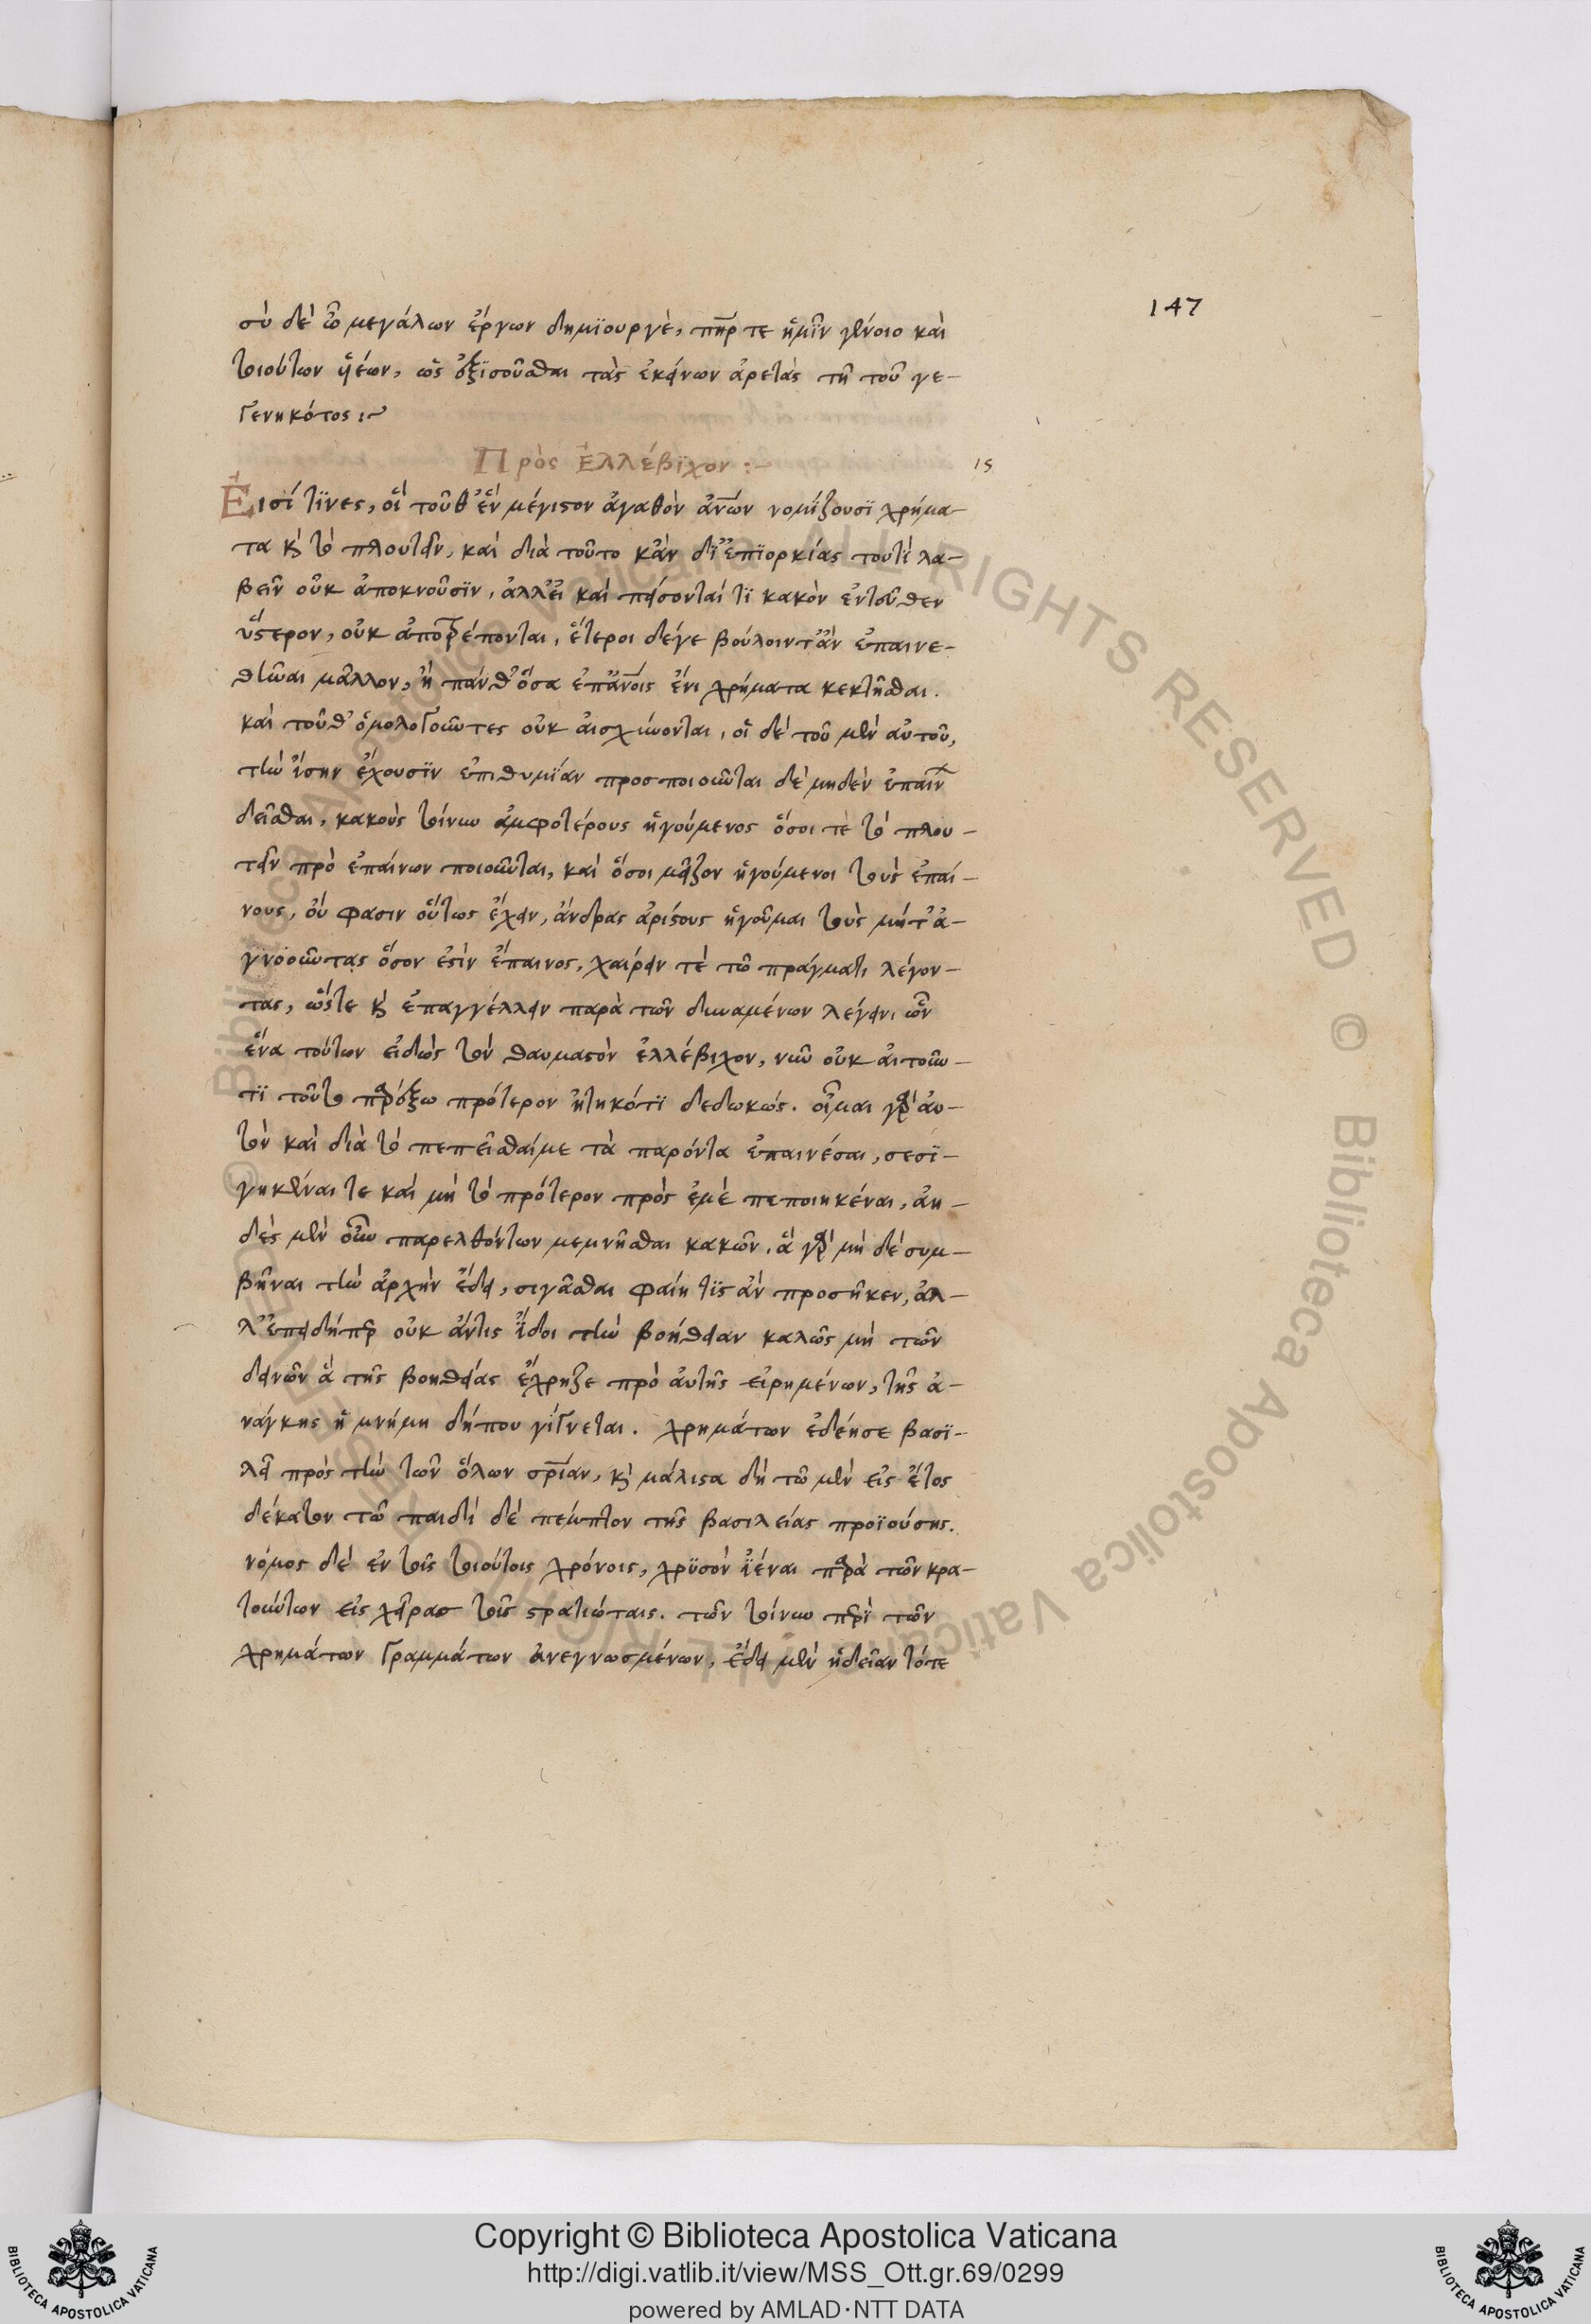 147
σὺ δὲ ὦ μεγάλων ἔργων δημϊουργὲ, πῆρ τε ἡμῖν γένοιο καὶ
τοιούτων ϋἱέων, ὡς ἐξϊσοῦσθαι τὰς ἐκείνων ἀρετὰς τῆ τοῦ γε-
γενηκότος :~
Πρὸς Ἐλλέβϊχον :-
ις
Ἐισί τϊνες, οἳ τοῦθ' ἓν μέγιστον ἀγαθὸν ἀνων νομίζουσϊ χρήμα-
τα κὶ τὸ πλουτεῖν, καὶ διὰ τοῦτο κἂν δϊ' ἐπϊορκίας τουτὶ λα-
βεῖν οὐκ ἀποκνοῦσϊν, ἀλλ' εἰ καὶ πείσονταί τϊ κακὸν ἐντεῦθεν
ὕστερον, οὐκ ἀποτρέπονται, ἕτεροι δέγε βούλοιντ' ἂν ἐπαινε-
θῆναι μᾶλλον, ἢ πάνθ' ὅσα ἐπ' ἀνοις ἔνι χρήματα κεκτῆσθαι.
καὶ τοῦθ' ὁμολογοῦντες οὐκ ἀισχύνονται, οἱ δὲ τοῦ μὲν αὐτοῦ,
τὴν ἴσην ἔχουσϊν ἐπιθυμϊαν προσποιοῦνται δὲ μηδὲν ἐπαίν
δεῖσθαι, κακοὺς τοίνυν ἀμφοτέρους ἡγούμενος ὅσοι τὲ τὸ πλου-
τεῖν πρὸ ἐπαίνων ποιοῦνται, καὶ ὅσοι μεῖζον ἡγούμενοι τοὺς ἐπαί-
νους, οὔ φασιν οὕτως ἔχειν, ἄνδρας ἀρίστους ἡγοῦμαι τοὺς μήτ' ἀ-
γνοοῦντας ὅσον ἐστὶν ἔπαινος, χαίρειν τὲ τῶ πράγματι λέγον-
τας, ὥστε κὶ ἐπαγγέλλειν παρὰ τῶν δυναμένων λέγειν, ὧν
ἕνα τούτων εἰδὼς τὸν θαυμαστὸν ἐλλέβιχον, νῦν οὐκ ἀιτοῦν-
τϊ τοῦτο παρέξω πρότερον ἠτηκότϊ δεδωκώς. οἶμαι γὰρ ἀυ-
τὸν καὶ διὰ τὸ πεπεῖσθαίμε τὰ παρόντα ἐπαινέσαι, σεσϊ-
γηκέναι τε καὶ μὴ τὸ πρότερον πρὸς ἐμὲ πεποιηκέναι, ἀη-
δὲς μὲν οὖν παρελθόντων μεμνῆσθαι κακῶν, ἃ γὰρ μὴ δὲ συμ-
βῆναι τὴν ἀρχὴν ἔδει, σιγᾶσθαι φαίη τϊς ἂν προσῆκεν, ἀλ-
λ' ἐπειδήπερ οὐκ ἄντις ἴδοι τὴν βοήθειαν καλῶς μὴ τῶν
δεινῶν ἃ τῆς βοηθείας ἔχρηζε πρὸ ἀυτῆς εἰρημένων, τῆς ἀ-
νάγκης ἡ μνήμη δήπου γίγνεται. χρημάτων ἐδέησε βασϊ-
λεῖ πρὸς τὴν τῶν ὅλων σρίαν, κὶ μάλιστα δὴ τῶ μὲν εἰς ἔτος
δέκατον τῶ παιδὶ δὲ πέμπτον τῆς βασιλείας προϊούσης.
νόμος δὲ ἐν τοῖς τοιούτοις χρόνοις, χρϋσὸν ἰέναι παρὰ τῶν κρα-
τούντων εἰς χεῖρας τοῖς στρατιώταις. τῶν τοίνυν περὶ τῶν
χρημάτων γραμμάτων ἀνεγνωσμένων, ἔδει μὲν ἡδεῖαν τότε
Copyright © Biblioteca Apostolica Vaticana
http://digi.vatlib.it/view/MSS_Ott.gr.69/0299
powered by AMLAD·NTT DATA